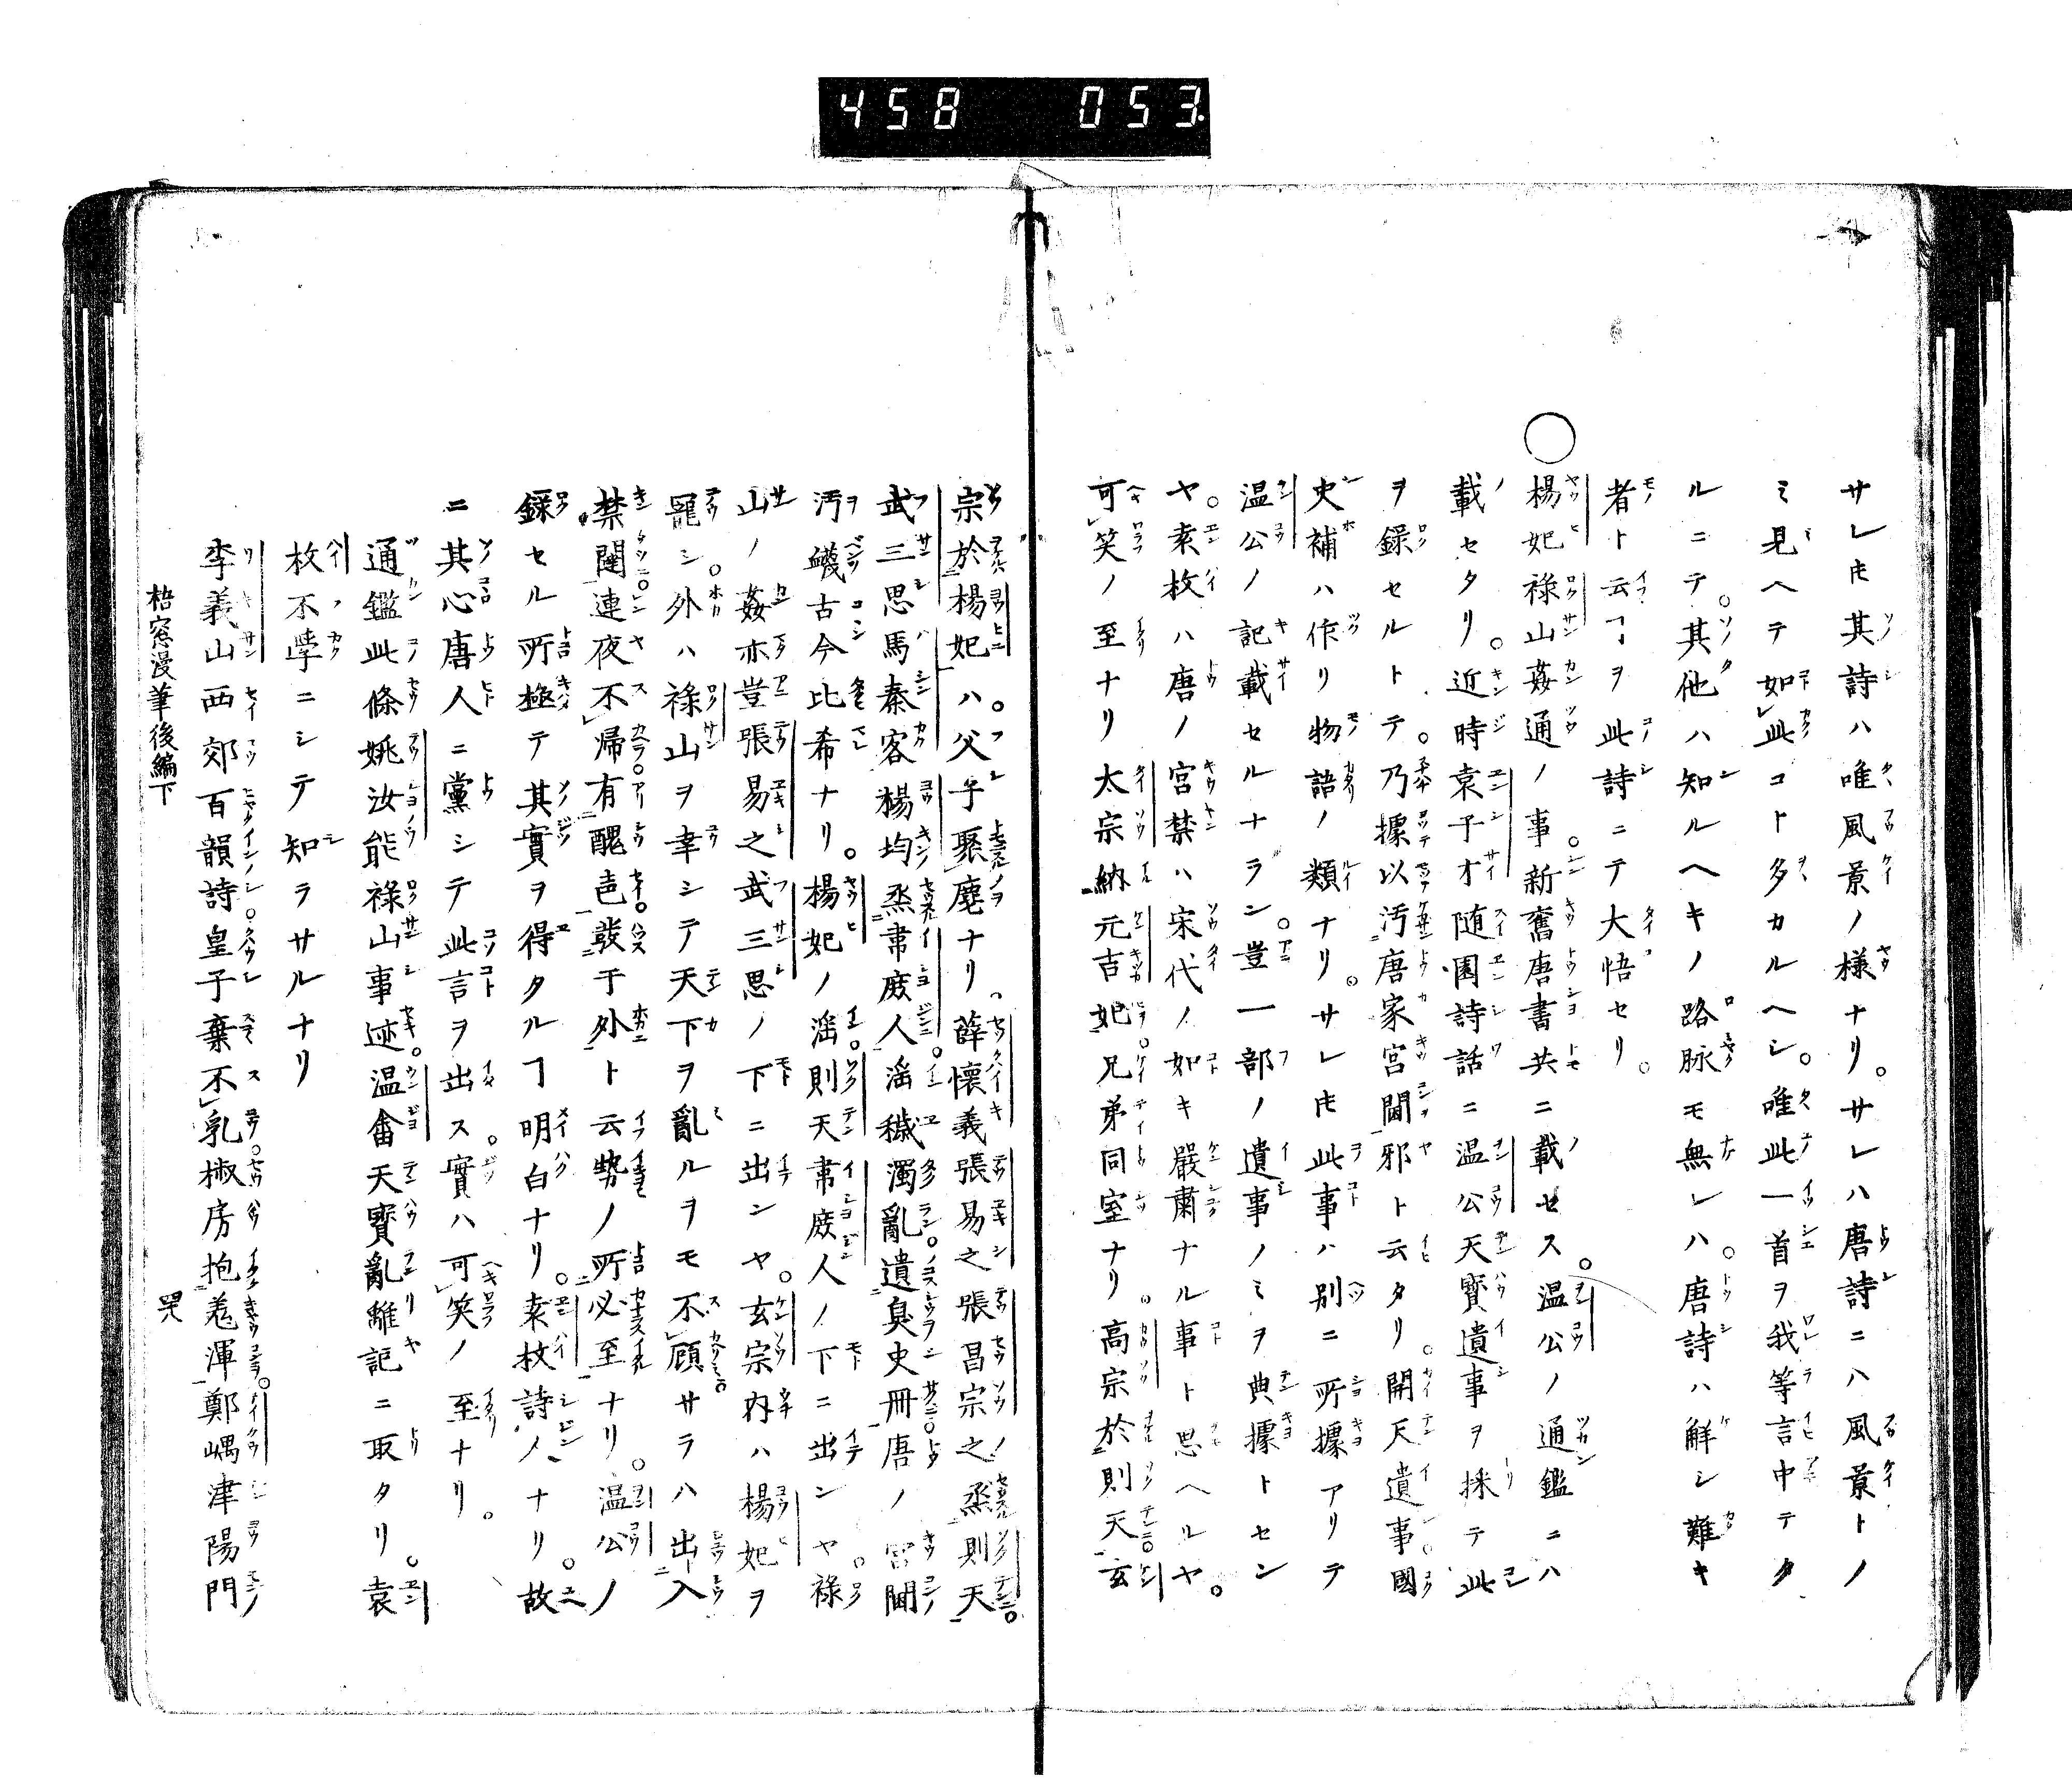 458 053
サレ𪜈其詩ハ唯風景ノ様ナリ。サレハ唐詩ニハ風景トノ
ミ見ヘテ如此コト多カルヘシ。唯此一首ヲ我等言中テタ
ルニテ。其他ハ知ルヘキノ路脉モ無レハ。唐詩ハ解シ難キ
者ト云ヿヲ此詩ニテ大悟セリ。
○楊妃祿山姦通ノ事。新舊唐書共ニ載セス。温公ノ通鑑ニハ
載セタリ。近時袁子才随園詩話ニ温公天寶遺事ヲ採テ此
ヲ錄セルトテ。乃據以汚唐家宮閫邪ト云タリ。開天遺事。國
史補ハ作リ物語ノ類ナリ。サレ𪜈此事ハ別ニ所據アリテ
温公ノ記載セルナラン。豈一部ノ遺事ノミヲ典據トセン
ヤ。袁枚ハ唐ノ宮禁ハ宋代ノ如キ嚴肅ナル事ト思ヘルヤ。
可笑ノ至ナリ太宗納元吉妃。兄弟同室ナリ。高宗於則天。玄
宗於楊妃ハ。父子聚麀ナリ。薛懷義張易之張昌宗之烝則天。
武三思馬秦客楊均烝韋庻人。滛穢濁亂。遺臭史冊。唐ノ宮閫
汚衊古今比希ナリ。楊妃ノ滛。則天韋庻人ノ下ニ出ンヤ。祿
山ノ姦亦豈張易之武三思ノ下ニ出ンヤ。玄宗内ハ楊妃ヲ
寵シ。外ハ祿山ヲ幸シテ天下ヲ亂ルヲモ不顧サラハ出入
禁闥。連夜不帰。有醜声。發于外ト云勢ノ所必至ナリ。温公ノ
錄セル所極テ其實ヲ得タルヿ明白ナリ。袁枚詩人ナリ。故
ニ其心唐人ニ黨シテ此言ヲ出ス。實ハ可笑ノ至ナリ。
通鑑此條姚汝能祿山事迹。温畬天寳亂離記ニ取タリ。袁
枚不學ニシテ知ラサルナリ
李義山西郊百韻詩。皇子棄不乳。椒房抱羗渾。鄭嵎津陽門
梧窓漫筆後編下